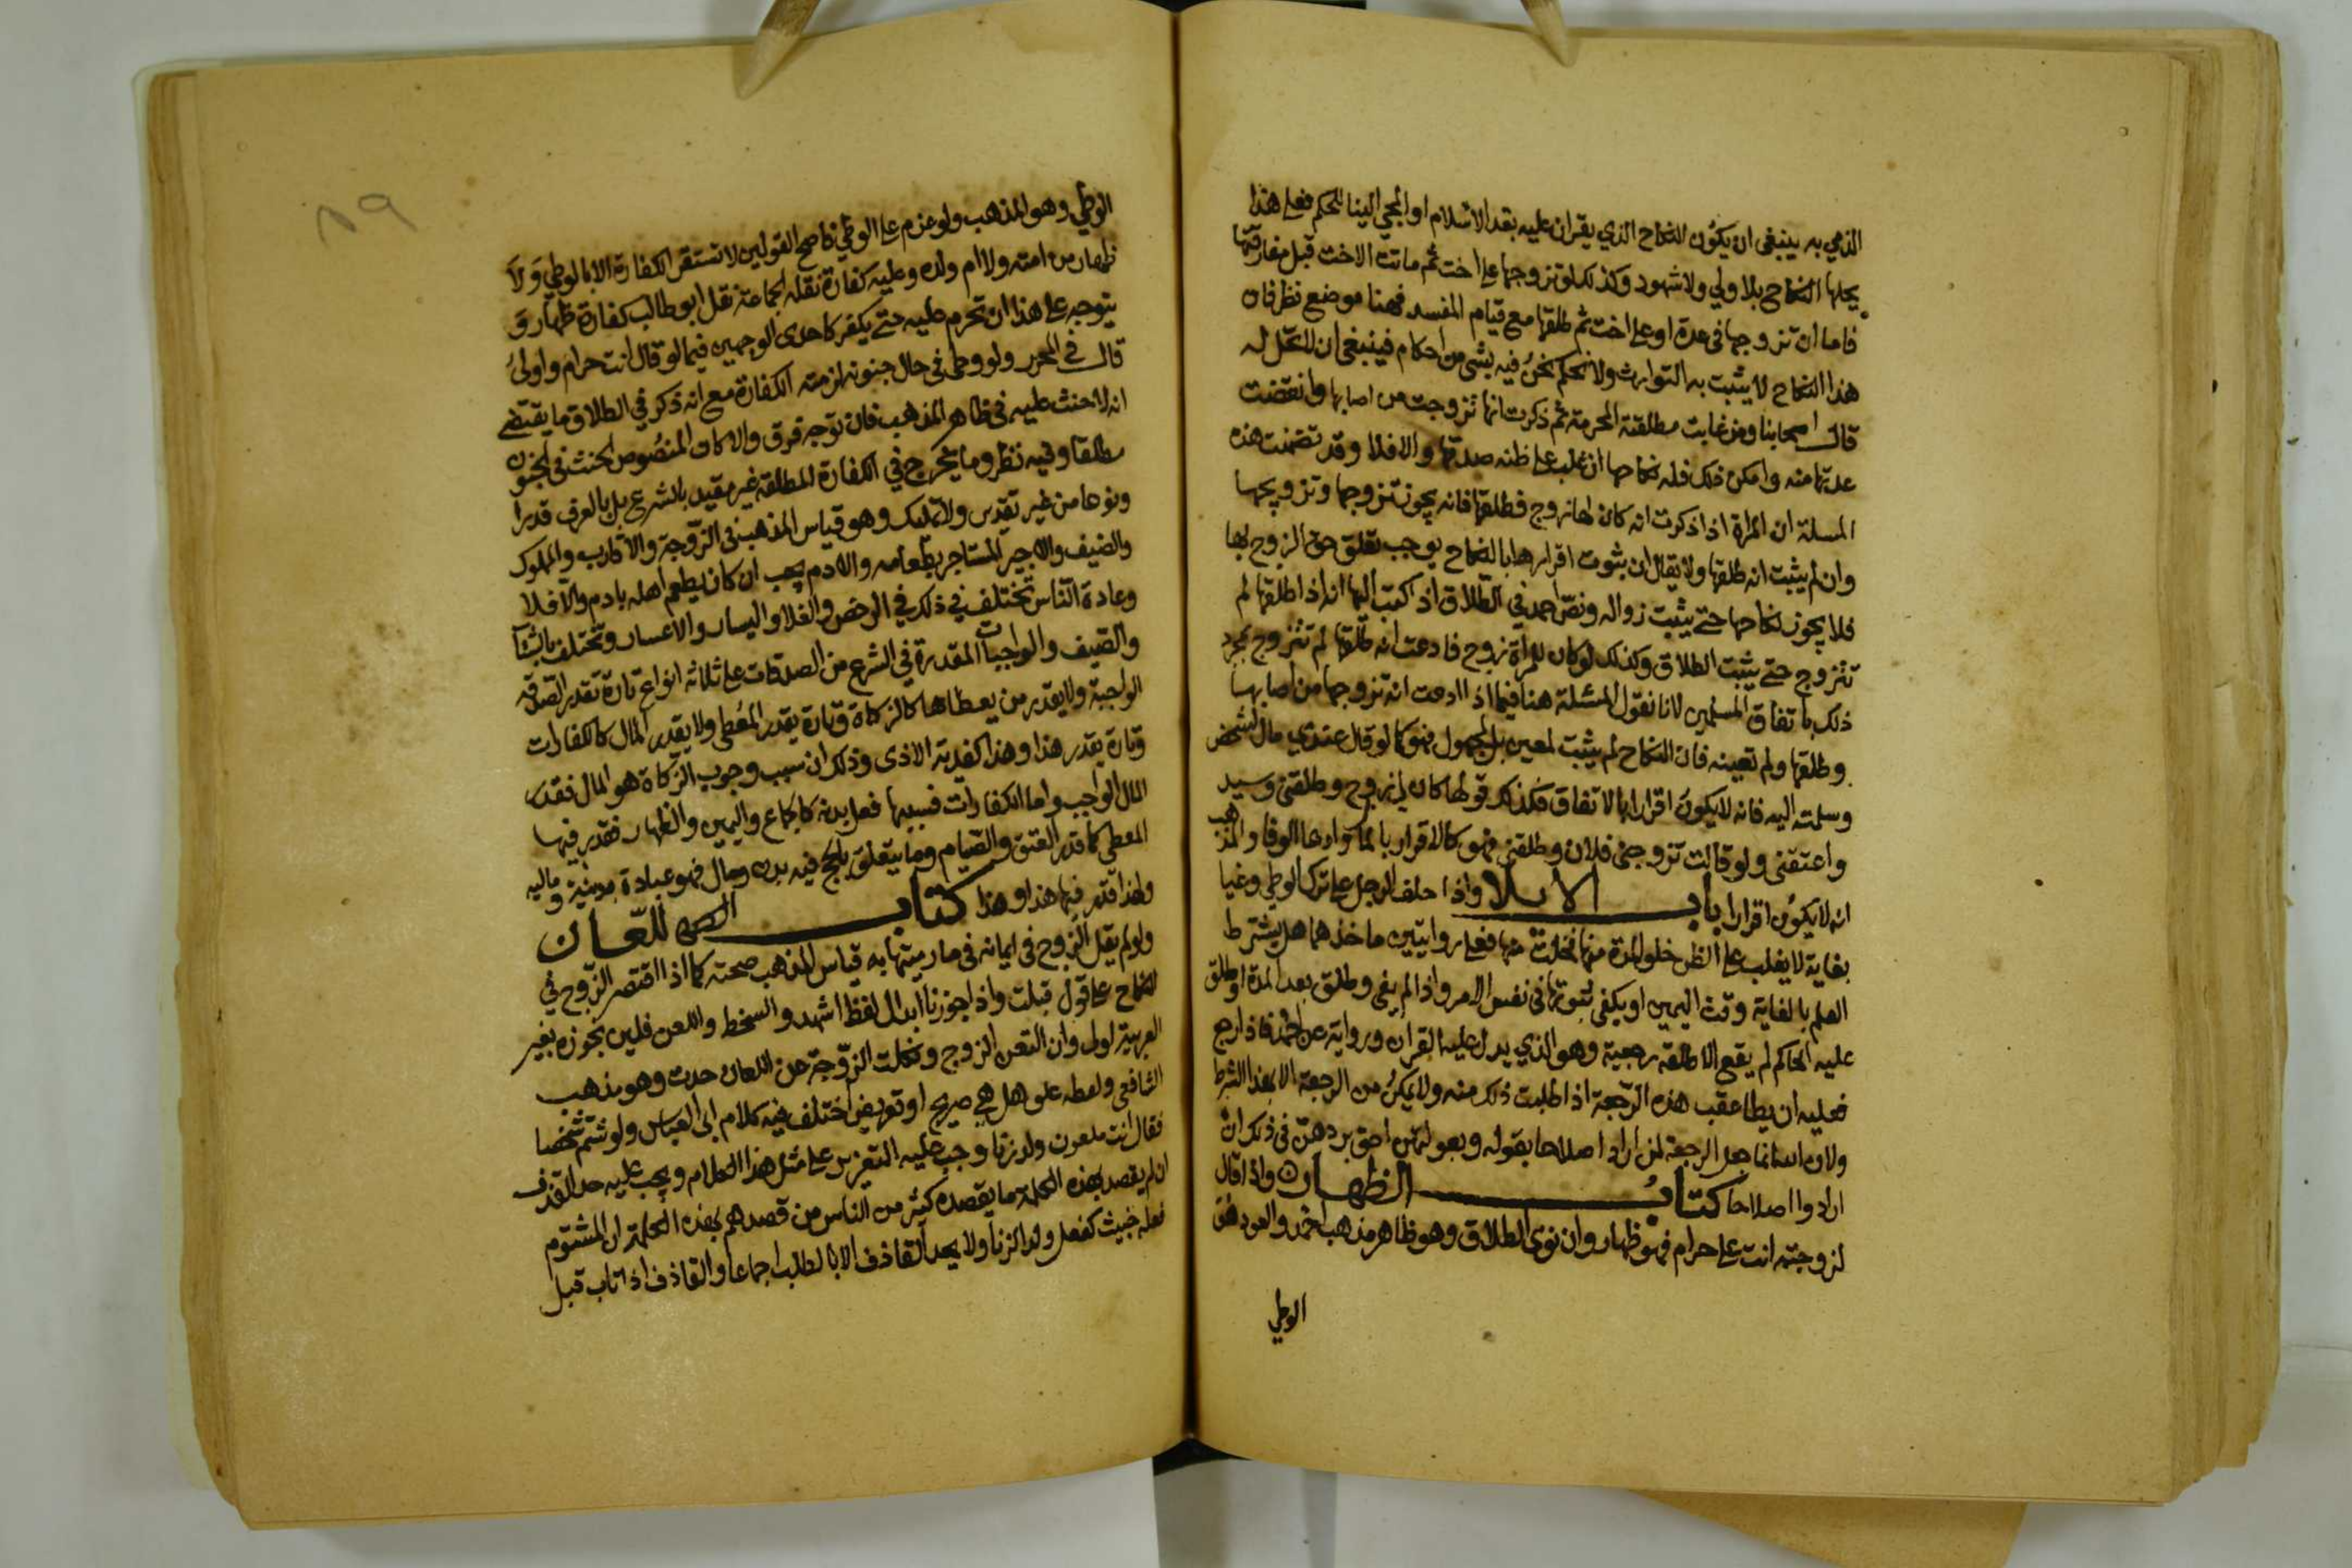 الذمي به ينبغي ان يكون النكاح الذي يقران عليه بعد الاسلام او المجي الينا للحكم فعلى هذا
يحلها النكاح بلا ولي ولا شهود وكذلك لو تزوجها على اخت ثم ماتت الاخت قبل مفارقتها
فاما ان تزوجها في عدة او على اخت ثم طلقها مع قيام المفسد فهنا موضع نظر فان
هذا النكاح لا يثبت به التوارث ولا نحكم نحن فيه بشي من احكام فينبغي ان لا تحل له
قال اصحابنا ومن غابت مطلقته المحرمة ثم ذكرت انها تزوجت من اصابها وانقضت
عدتها منه وامكن ذلك فله نكاحها ان غلب على ظنه صدقها والا فلا وقد تضمنت هذه
المسلة ان المراة اذا ذكرت انه كان لها زوج فطلقها فانه يجوز تزوجها وتزويجها
وان لم يثبت انه طلقها ولا يقال ان ثبوت اقرارها بالنكاح يوجب تعلق حق الزوج بها
فلا يجوز نكاحها حتى يثبت زواله ونص احمد في الطلاق اذا كتب اليها انه اذا طلقها لم
تتزوج حتى يثبت الطلاق وكذلك لو كان للمراة زوج فادعت انه طلقها لم تتزوج بمجرد
ذلك باتفاق المسلمين لانا نقول المسئلة هنا فيما اذا ادعت انه تزوجها من اصابها
وطلقها ولم تعينه فان النكاح لم يثبت لمعين بل لمجهول فهو كما لو قال عندي مال لشخص
وسلمته اليه فانه لا يكون اقرارا بالاتفاق فكذلك قولها كان لي زوج وطلقني وسيد
واعتقني ولو قالت تزوجني فلان وطلقني فهو كالاقرار بالمال وادعا الوفا والمذهب
انه لا يكون اقرارا باب الايلا واذا حلف الرجل على ترك الوطي وغيا
بغاية لا يغلب على الظن خلو المدة منها فخلت منها فعلى روايتين ماخذهما هل يشترط
العلم بالغاية وقت اليمين او يكفي ثبوتها في نفس الامر واذا لم يفي وطلق بعد المدة او طلق
عليه الحاكم لم يقع الا طلقة رجعية وهو الذي يدل عليه القران ورواية عن احمد فاذا راجع
فعليه ان يطا عقب هذه الرجعة اذا طلبت ذلك منه ولا يمكن من الرجعة الا بهذا الشرط
ولان الله انما جعل الرجعة لمن اراد اصلاحا بقوله وبعولتهن احق بردهن في ذلك ان
ارادوا اصلاحا كتاب الظهار واذا قال
لزوجته انت علي حرام فهو ظهار وان نوى الطلاق وهو ظاهر مذهب احمد والعود هو
الوطي
٨٩
الوطي وهو المذهب ولو عزم على الوطي فاصح القولين لا تستقر الكفارة الا بالوطي ولا
ظهار من امته ولا ام ولده وعليه كفارة نقله الجماعة نقل ابو طالب كفارة ظهار و
يتوجه على هذا ان تحرم عليه حتى يكفر كاحدى الوجهين فيما لو قال انت حرام واولى
قال في المحرر ولو وطي في حال جنونه لزمته الكفارة مع انه ذكر في الطلاق ما يقتضي
انه لا حنث عليه في ظاهر المذهب فان توجه فرق والا كان المنصوص الحنث في الجنون
مطلقا وفيه نظر وما يخرج في الكفارة المطلقة غير مقيد بالشرع بل بالعرف قدرا
ونوعا من غير تقدير ولا تمليك وهو قياس المذهب في الزوجة والاقارب والمملوك
والضيف والاجير المستاجر بطعامه والادم يجب ان كان يطعم اهله بادم والا فلا
وعادة الناس تختلف في ذلك في الرخص والغلا واليسار والاعسار وتختلف بالشتا
والصيف والواجبات المقدرة في الشرع من الصدقات على ثلاثة انواع تارة تقدر الصدقة
الواجبة ولا يقدر من يعطاها كالزكاة وتارة يقدر المعطى ولا يقدر المال كالكفارات
وتارة يقدر هذا وهذا كفدية الاذى وذلك ان سبب وجوب الزكاة هو المال فقدر
المال الواجب واما الكفارات فسببها فعل بدنه كالجماع واليمين والظهار فقدر فيها
المعطى كما قدر العتق والصيام وما يتعلق بالحج فيه بدن ومال فهو عبادة بدنية ومالية
ولهذا قدر فيها هذا وهذا كتاب اللعان
ولو لم يقل الزوج في ايمانه فيما رميتها به قياس المذهب صحته كما اذا اقتصر الزوج في
النكاح على قول قبلت واذا جوزنا ابدال لفظ اشهد والسخط واللعن فلين نجوزه بغير
العربية اولى وان التعن الزوج ونكلت الزوجة عن اللعان حدت وهو مذهب
الشافعي ولفظه علق هل هي صريح او تعريض اختلف فيه كلام ابي العباس ولو شتم شخصا
فقال انت ملعون ولد زنا وجب عليه التعزير على مثل هذا الكلام ويجب عليه حد القذف
ان لم يقصد بهذه الكلمة ما يقصده كثير من الناس من قصدهم بهذه الكلمة ان المشتوم
فعله خبيث كفعل ولد الزنا ولا يحد القاذف الا بالطلب اجماعا والقاذف اذا تاب قبل